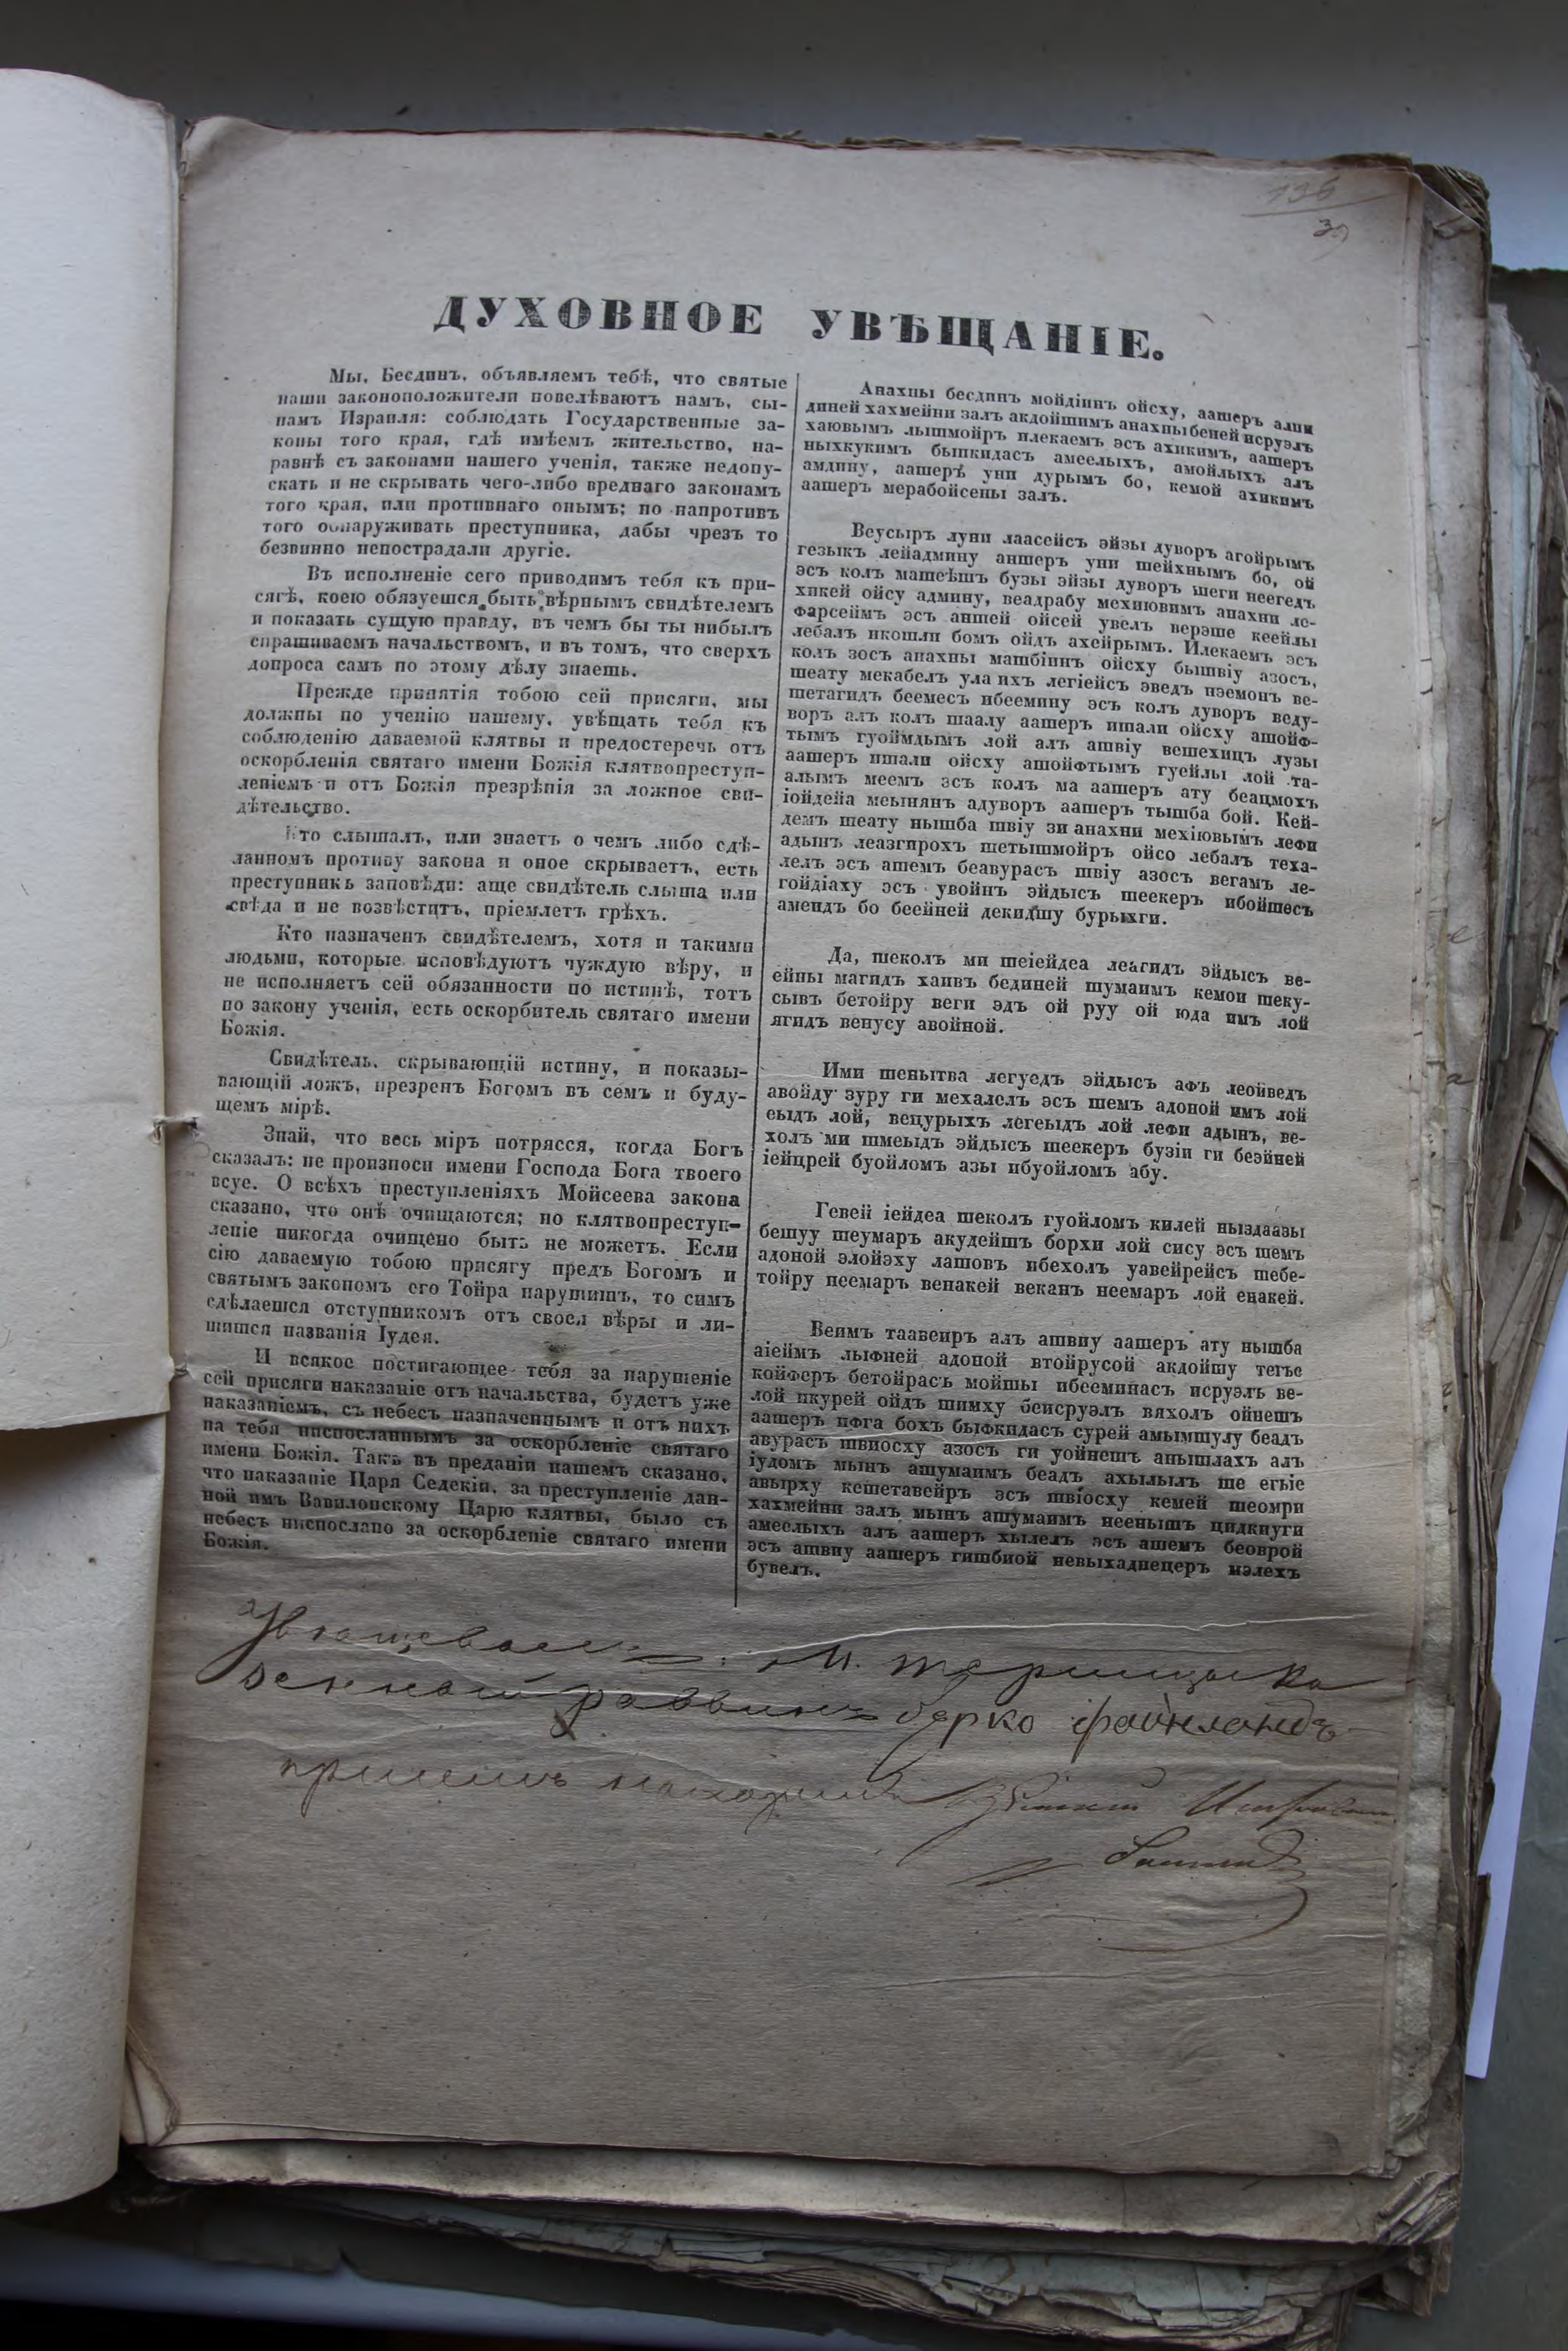 136
39
ДУХОВНОЕ УВѢЩАНІЕ.
Мы, Бесдинъ, объявляемъ тебѣ, что святые
наши законоположители повелѣваютъ намъ, сы-
намъ Израиля: соблюдать Государственные за-
коны того края, гдѣ имѣемъ жительство, на-
равнѣ съ законами нашего ученія, также недопу-
скать и не скрывать чего-либо вреднаго законамъ
того края, или противнаго онымъ; но напротивъ
того обнаруживать преступника, дабы чрезъ то
безвинно непострадали другіе.
Въ исполненіе сего приводимъ тебя къ при-
сягѣ, коею обязуешся быть вѣрнымъ свидѣтелемъ
и показать сущую правду, въ чемъ бы ты нибылъ
спрашиваемъ начальствомъ, и въ томъ, что сверхъ
допроса самъ по этому дѣлу знаешь.
Прежде принятія тобою сей присяги, мы
должны по ученію нашему, увѣщать тебя къ
соблюденію даваемой клятвы и предостеречь отъ
оскорбленія святаго имени Божія клятвопреступ-
леніемъ и отъ Божія презрѣнія за ложное сви-
дѣтельство.
Кто слышалъ, или знаетъ о чемъ либо сдѣ-
ланномъ противу закона и оное скрываетъ, есть
преступникъ заповѣди: аще свидѣтель слыша или
свѣда и не возвѣститъ, пріемлетъ грѣхъ.
Кто назначенъ свидѣтелемъ, хотя и такими
людьми, которые исповѣдуютъ чуждую вѣру, и
не исполняетъ сей обязанности по истинѣ, тотъ
по закону ученія, есть оскорбитель святаго имени
Божія.
Свидѣтель, скрывающій истину, и показы-
вающій ложъ, презренъ Богомъ въ семъ и буду-
щемъ мірѣ.
Знай, что весь міръ потрясся, когда Богъ
сказалъ: не произноси имени Господа Бога твоего
всуе. О всѣхъ преступленіяхъ Мойсеева закона
сказано, что онѣ очищаются; но клятвопреступ-
леніе никогда очищено быть не можетъ. Если
сію даваемую тобою присягу предъ Богомъ и
святымъ закономъ его Тойра нарушишъ, то симъ
сдѣлаешся отступникомъ отъ своея вѣры и ли-
шишся названія Іудея.
И всякое постигающее тебя за нарушеніе
сей присяги наказаніе отъ начальства, будетъ уже
наказаніемъ, съ небесъ назначеннымъ и отъ нихъ
на тебя ниспосланнымъ за оскорбленіе святаго
имени Божія. Такъ въ преданіи нашемъ сказано,
что наказаніе Царя Седекіи, за преступленіе дан-
ной имъ Вавилонскому Царю клятвы, было съ
небесъ ниспослано за оскорбленіе святаго имени
Божія.
Анахны бесдинъ мойдіинъ ойсху, аашеръ алпи
диней хахмейни залъ акдойшимъ анахны беней исруэлъ
хаювымъ лышмойръ илекаемъ эсъ ахикимъ, аашеръ
ныхкукимъ быпкидасъ амеелыхъ, амойлыхъ алъ
амдину, аашеръ уни дурымъ бо, кемой ахикимъ
аашеръ мерабойсены залъ.
Веусыръ луни лаасейсъ эйзы дуворъ агойрымъ
гезыкъ лейадмину аишеръ уни шейхнымъ бо, ой
эсъ колъ машеѣшъ бузы эйзы дуворъ шеги неегедъ
хикей ойсу админу, веадрабу мехиювимъ анахни ле-
фарсеймъ эсъ аишей ойсей увелъ верэше кеейлы
лебалъ икошли бомъ ойдъ ахейрымъ. Илекаемъ эсъ
колъ зосъ анахны машбіинъ ойсху бышвіу азосъ,
шеату мекабелъ ула ихъ легіейсъ эведъ нэемонъ ве-
шетагидъ беемесъ ибеемину эсъ колъ дуворъ веду-
воръ алъ колъ шаалу аашеръ ишали ойсху ашойф-
тымъ гуоймдымъ лой алъ ашвіу вешехицъ лузы
аашеръ ишали ойсху ашойфтымъ гуейлы лой та-
алымъ меемъ эсъ колъ ма аашеръ ату беацмохъ
іойдейа меынянъ адуворъ аашеръ тышба бой. Кей-
демъ шеату нышба швіу зи анахни мехіювымъ лефи
адынъ леазгирохъ шетышмойръ ойсо лебалъ теха-
лелъ эсъ ашемъ беавурасъ швіу азосъ вегамъ ле-
гойдіаху эсъ увойнъ эйдысъ шеекеръ ибойшесъ
амеидъ бо беейней декидшу бурыхги.
Да, шеколъ ми шеіейдеа леагидъ эйдысъ ве-
ейны магидъ хаивъ бединей шумаимъ кемои шеку-
сывъ бетойру веги эдъ ой руу ой юда имъ лой
ягидъ венусу авойной.
Ими шенытва легуедъ эйдысъ афъ леойведъ
авойду зуру ги мехалелъ эсъ шемъ адоной имъ лой
еыдъ лой, вецурыхъ легеыдъ лой лефи адынъ, ве-
холъ ми шмеыдъ эйдысъ шеекеръ бузіи ги беэйней
іейцрей буойломъ азы ибуойломъ абу.
Гевей іейдеа шеколъ гуойломъ килей ныздаазы
бешуу шеумаръ акудейшъ борхи лой сису эсъ шемъ
адоной элойэху лашовъ ибехолъ уавейрейсъ шебе-
тойру неемаръ венакей веканъ неемаръ лой енакей.
Веимъ таавеиръ алъ ашвиу аашеръ ату нышба
аіеймъ лыфней адоной втойрусой акдойшу тегъе
койферъ бетойрасъ мойшы ибееминасъ исруэлъ ве-
лой икурей ойдъ шимху беисруэлъ вяхолъ ойнешъ
аашеръ ифга бохъ быфкидасъ сурей амымшулу беадъ
авурасъ швиосху азосъ ги уойнешъ анышлахъ алъ
іудомъ мынъ ашумаимъ беадъ ахылылъ ше егьіе
авырху кешетавейръ эсъ швіосху кемей шеомри
хахмейни залъ мынъ ашумаимъ неенышъ цидкиуги
амеелыхъ алъ аашеръ хылелъ эсъ ашемъ беоврой
эсъ ашвиу аашеръ гишбиой невыхаднецеръ мэлехъ
бувелъ.
раввинъ Берко Файнландъ